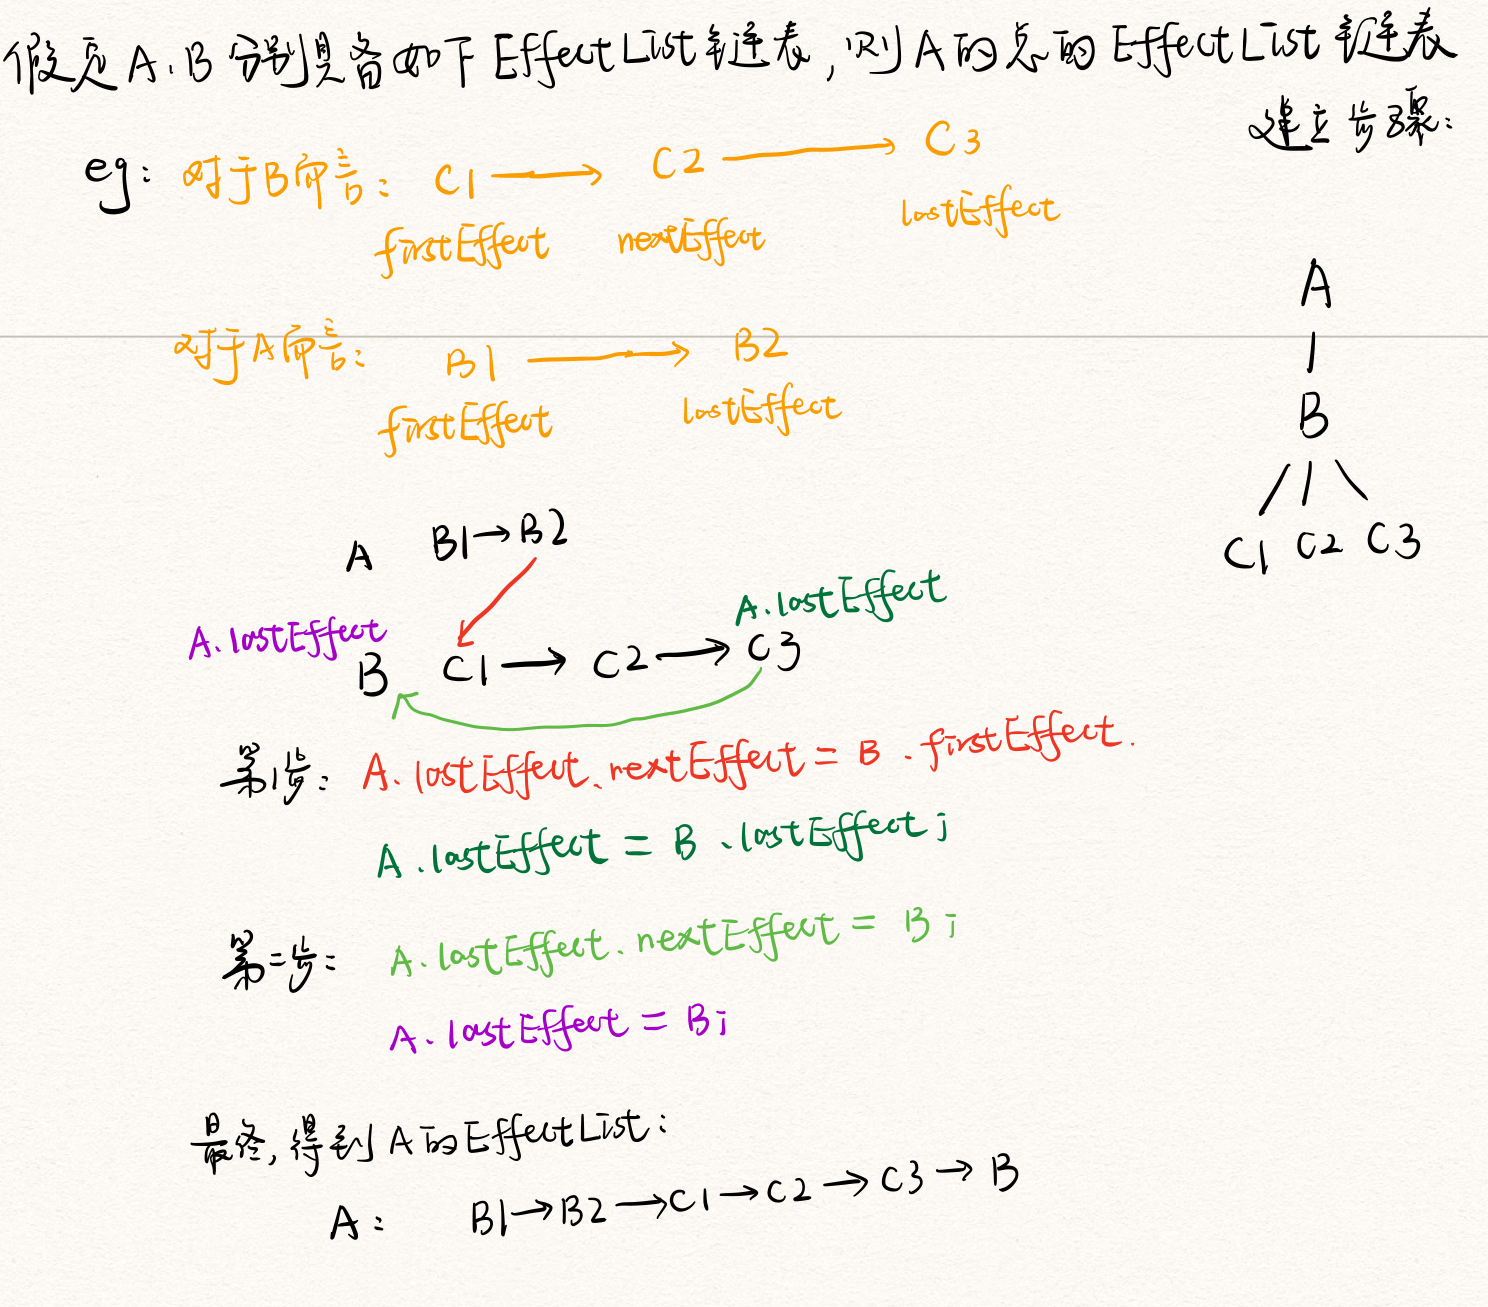 假定A、B分别具备如下EffectList链表,则A的总的EffectList链表
建立步骤:
eg: 对于B而言: C1 → C2 → C3
firstEffect nextEffect lastEffect
对于A而言: B1 → B2
firstEffect lastEffect
A
B
C1 C2 C3
A B1→B2
A.lastEffect
A.lastEffect
B C1 → C2 → C3
第1步: A.lastEffect.nextEffect = B.firstEffect.
A.lastEffect = B.lastEffect;
第二步: A.lastEffect.nextEffect = B;
A.lastEffect = B;
最终,得到A的EffectList:
A: B1→B2→C1→C2→C3→B